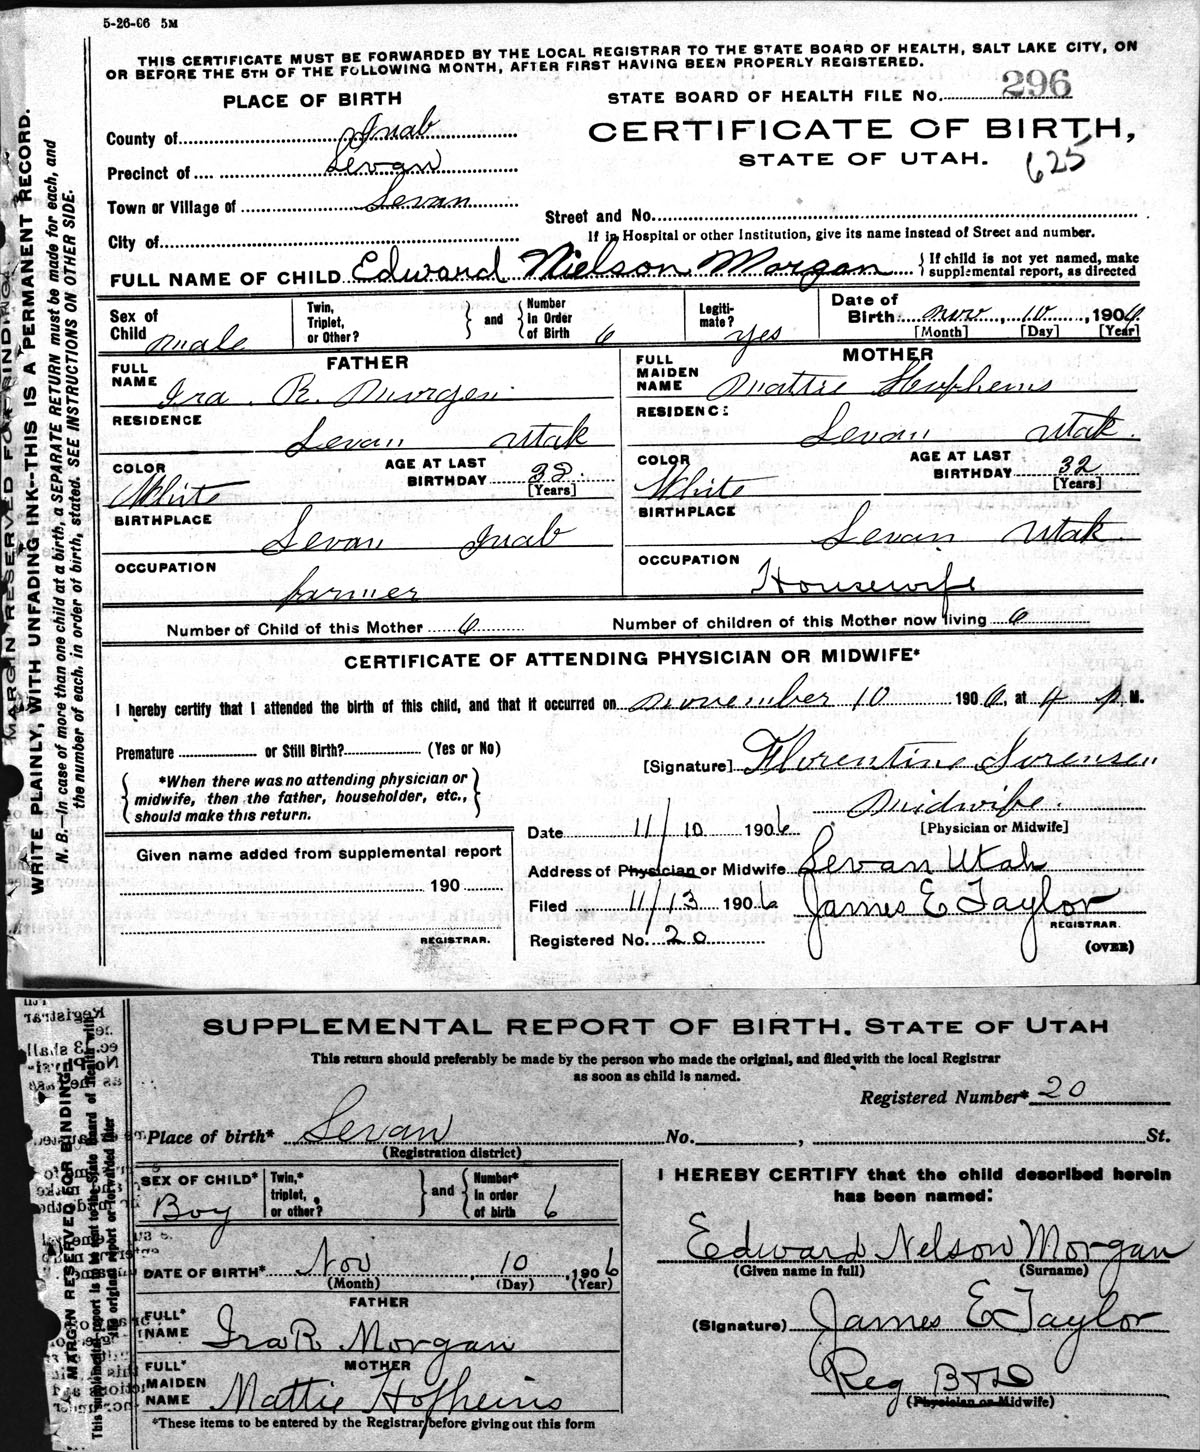 5-26-06 5M
THIS CERTIFICATE MUST BE FORWARDED BY THE LOCAL REGISTRAR TO THE STATE BOARD OF HEALTH, SALT LAKE CITY, ON
OR BEFORE THE 5TH OF THE FOLLOWING MONTH, AFTER FIRST HAVING BEEN PROPERLY REGISTERED.
MARGIN RESERVED FOR BINDING.
WRITE PLAINLY, WITH UNFADING INK--THIS IS A PERMANENT RECORD.
N. B.—In case of more than one child at a birth, a SEPARATE RETURN must be made for each, and
the number of each, in order of birth, stated. SEE INSTRUCTIONS ON OTHER SIDE.
PLACE OF BIRTH
STATE BOARD OF HEALTH FILE No. 296
CERTIFICATE OF BIRTH,
STATE OF UTAH.
625
County of Juab
Precinct of Levan
Town or Village of Levan
Street and No.
City of
If in Hospital or other Institution, give its name instead of Street and number.
FULL NAME OF CHILD Edward Nielson Morgan { If child is not yet named, make
supplemental report, as directed
Sex of Child male
Twin, Triplet, or Other? } and { Number in Order of Birth 6
Legiti-mate? yes
Date of Birth Nov, 10, 1906
[Month] [Day] [Year]
FATHER
FULL NAME Ira R. Morgan
RESIDENCE Levan Utah
COLOR White AGE AT LAST BIRTHDAY 38 [Years]
BIRTHPLACE Levan Juab
OCCUPATION farmer
MOTHER
FULL MAIDEN NAME Mattie Hopheins
RESIDENCE Levan Utah.
COLOR White AGE AT LAST BIRTHDAY 32 [Years]
BIRTHPLACE Levan Utah
OCCUPATION Housewife
Number of Child of this Mother 6 Number of children of this Mother now living 6
CERTIFICATE OF ATTENDING PHYSICIAN OR MIDWIFE*
I hereby certify that I attended the birth of this child, and that it occurred on november 10 1906, at 4 p M.
Premature or Still Birth? (Yes or No)
[Signature] Florentine Sorensen
{ *When there was no attending physician or
midwife, then the father, householder, etc.,
should make this return. }
midwife.
[Physician or Midwife]
Date 11/10 1906
Given name added from supplemental report
190
REGISTRAR.
Address of Physician or Midwife Levan Utah
Filed 11/13 1906 James E Taylor
REGISTRAR.
Registered No. 20
(OVER)
SUPPLEMENTAL REPORT OF BIRTH, STATE OF UTAH
This return should preferably be made by the person who made the original, and filed with the local Registrar
as soon as child is named.
Registered Number* 20
MARGIN RESERVED FOR BINDING
This supplemental report is to be sent to the State Board of Health with
the original report or forwarded later
Place of birth* Levan No. , St.
(Registration district)
SEX OF CHILD* Boy
Twin,* triplet, or other? } and { Number* in order of birth 6
DATE OF BIRTH* Nov, 10, 1906
(Month) (Day) (Year)
FATHER
FULL* NAME Ira R Morgan
MOTHER
FULL* MAIDEN NAME Mattie Hofheins
*These items to be entered by the Registrar before giving out this form
I HEREBY CERTIFY that the child described herein
has been named:
Edward Nelson Morgan
(Given name in full) (Surname)
(Signature) James E Taylor
Reg
(Physician or Midwife)